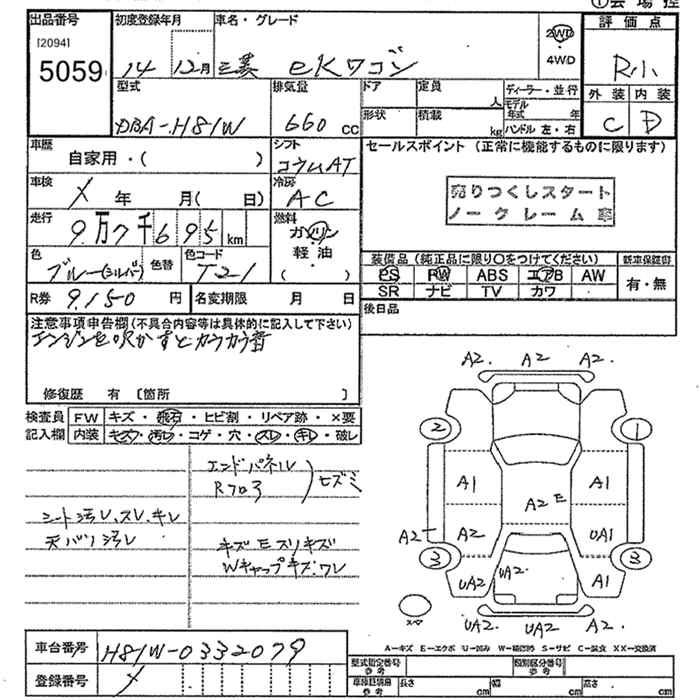 ①会場控
出品番号 初度登録年月 車名・グレード 評価点
[2094]
5059 14 12月 三菱 eKワゴン 2WD・4WD R小
外装 内装
C D
型式 排気量 ドア 定員 人 ディーラー・並行
DBA-H81W 660 cc 形状 積載 kg モデル年式 年
ハンドル 左・右
車歴 自家用・( ) シフト コラムAT
セールスポイント (正常に機能するものに限ります)
車検 × 年 月(日) 冷房 AC
売りつくしスタート
ノークレーム車
走行 9万7千695km 燃料 ガソリン
軽油
( )
色 ブルー(シルバ) 色替 色コード T21
装備品 (純正品に限り○をつけてください) 新車保証書
PS PW ABS エアB AW 有・無
SR ナビ TV カワ
R券 9,150円 名変期限 月 日
後日品
注意事項申告欄(不具合内容等は具体的に記入して下さい)
エンジンを吹かすとカラカラ音
修復歴 有 〔箇所 〕
検査員 FW キズ・飛石・ヒビ割・リペア跡・×要
記入欄 内装 キズ・汚レ・コゲ・穴・スレ・キレ・破レ
エンドパネル
Rフロア
ヒズミ
シート汚レ、スレ、キレ
天バリ汚レ
キズ E スリキズ
Wキャップキズ、ワレ
A2. A2 A2.
2 1
A1 A1
A2 E
A2 A2 UA1
3 3
UA2 UA2 A1
スペ
UA2 UA2 A2.
A-キズ E-エクボ U-凹み W-補修跡 S-サビ C-腐食 XX-交換済
車台番号 H81W-0332079
登録番号 ×
型式指定番号 参考 類別区分番号 参考
車検証数値 参考 長さ cm 幅 cm 高さ cm